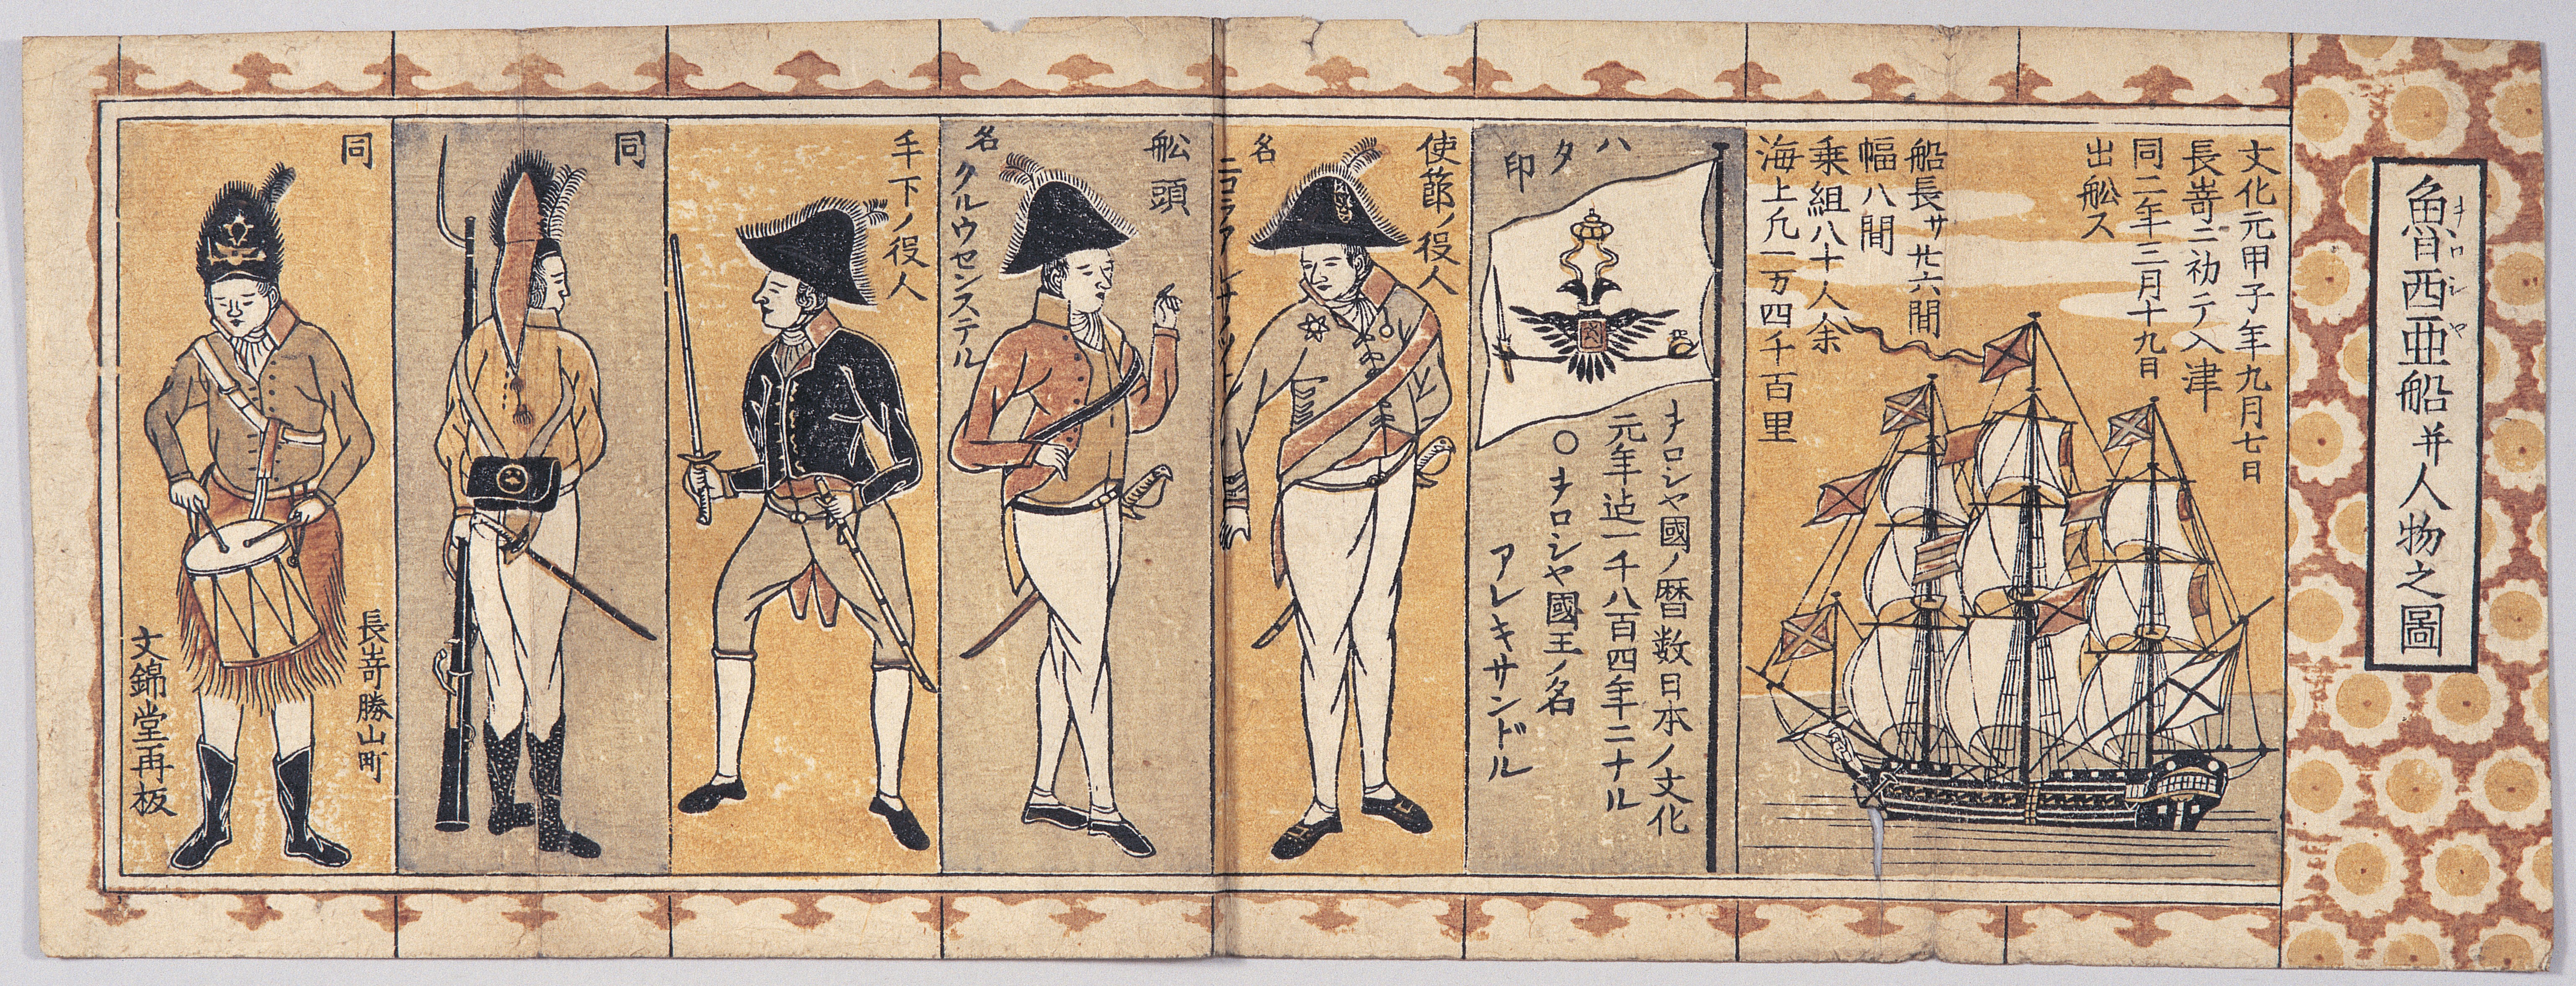 魯西亜船并人物之圖
ヲロシヤ
文化元甲子年九月七日
長嵜ニ初テ入津
同二年三月十九日
出舩ス
船長サ廿六間
幅八間
乗組八十人余
海上凡一万四千百里
ハタ印
ヲロシヤ國ノ暦数日本ノ文化
元年迠一千八百四年ニナル
○ヲロシヤ國王ノ名
アレキサンドル
使節ノ役人
名
ニコラア
舩頭
名
クルウセンステル
手下ノ役人
同
同
長嵜勝山町
文錦堂再板